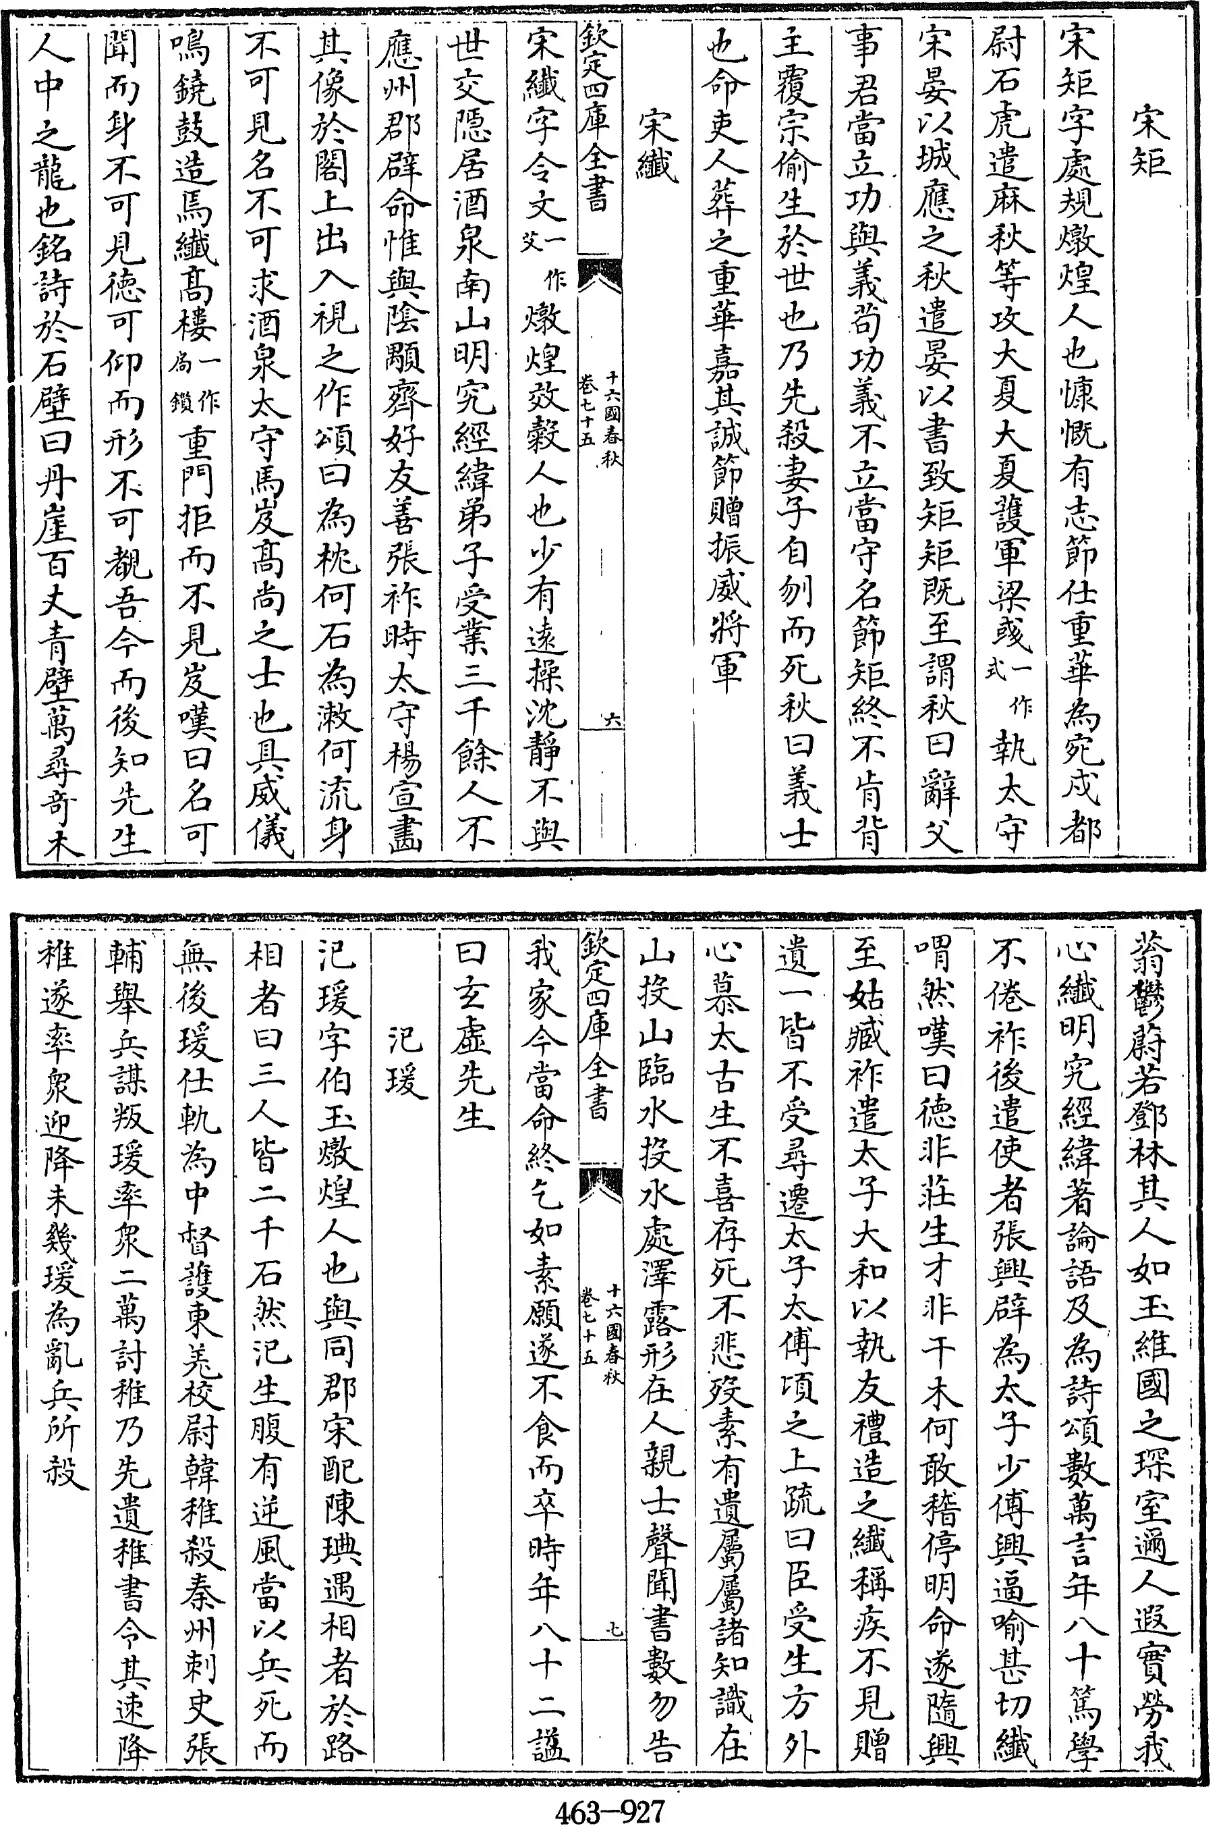 宋矩
宋矩字處規燉煌人也慷慨有志節仕重華為宛戍都
尉石虎遣麻秋等攻大夏大夏護軍梁彧一作式執太守
宋晏以城應之秋遣晏以書致矩矩既至謂秋曰辭父
事君當立功與義苟功義不立當守名節矩終不肯背
主覆宗偷生於世也乃先殺妻子自刎而死秋曰義士
也命吏人葬之重華嘉其誠節贈振威將軍
宋纖
欽定四庫全書
十六國春秋
卷七十五
六
宋纖字令文一作艾燉煌效穀人也少有遠操沈靜不與
世交隱居酒泉南山明究經緯弟子受業三千餘人不
應州郡辟命惟與陰顒齊好友善張祚時太守楊宣畫
其像於閣上出入視之作頌曰為枕何石為漱何流身
不可見名不可求酒泉太守馬岌高尚之士也具威儀
鳴鐃鼓造焉纖高樓一作扃鎖重門拒而不見岌嘆曰名可
聞而身不可見德可仰而形不可覩吾今而後知先生
人中之龍也銘詩於石壁曰丹崖百丈青壁萬尋奇木
蓊鬱蔚若鄧林其人如玉維國之琛室邇人遐實勞我
心纖明究經緯著論語及為詩頌數萬言年八十篤學
不倦祚後遣使者張興辟為太子少傅興逼喻甚切纖
喟然嘆曰德非莊生才非干木何敢稽停明命遂隨興
至姑臧祚遣太子大和以執友禮造之纖稱疾不見贈
遺一皆不受尋遷太子太傅頃之上疏曰臣受生方外
心慕太古生不喜存死不悲歿素有遺屬屬諸知識在
山投山臨水投水處澤露形在人親士聲聞書數勿告
欽定四庫全書
十六國春秋
卷七十五
七
我家今當命終乞如素願遂不食而卒時年八十二諡
曰玄虛先生
氾瑗
氾瑗字伯玉燉煌人也與同郡宋配陳琠遇相者於路
相者曰三人皆二千石然氾生腹有逆風當以兵死而
無後瑗仕軌為中督護東羌校尉韓稚殺秦州刺史張
輔舉兵謀叛瑗率衆二萬討稚乃先遺稚書令其速降
稚遂率衆迎降未幾瑗為亂兵所殺
463-927